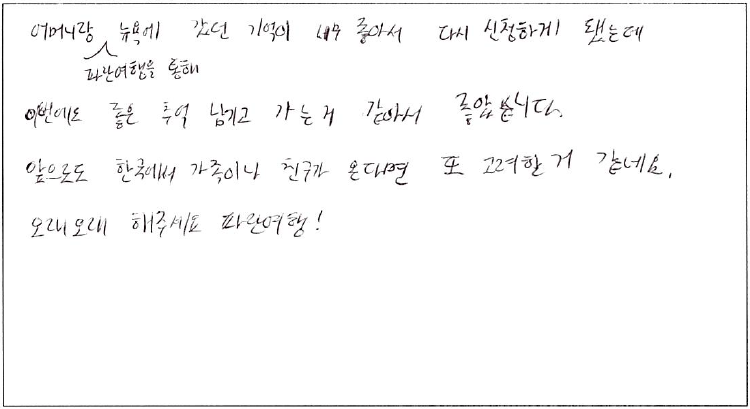 어머니랑 뉴욕에 갔던 기억이 너무 좋아서 다시 신청하게 됐는데
파란여행을 통해
이번에도 좋은 추억 남기고 가는거 같아서 좋았습니다.
앞으로도 한국에서 가족이나 친구가 온다면 또 고려할 거 같네요.
오래오래 해주세요 파란여행!